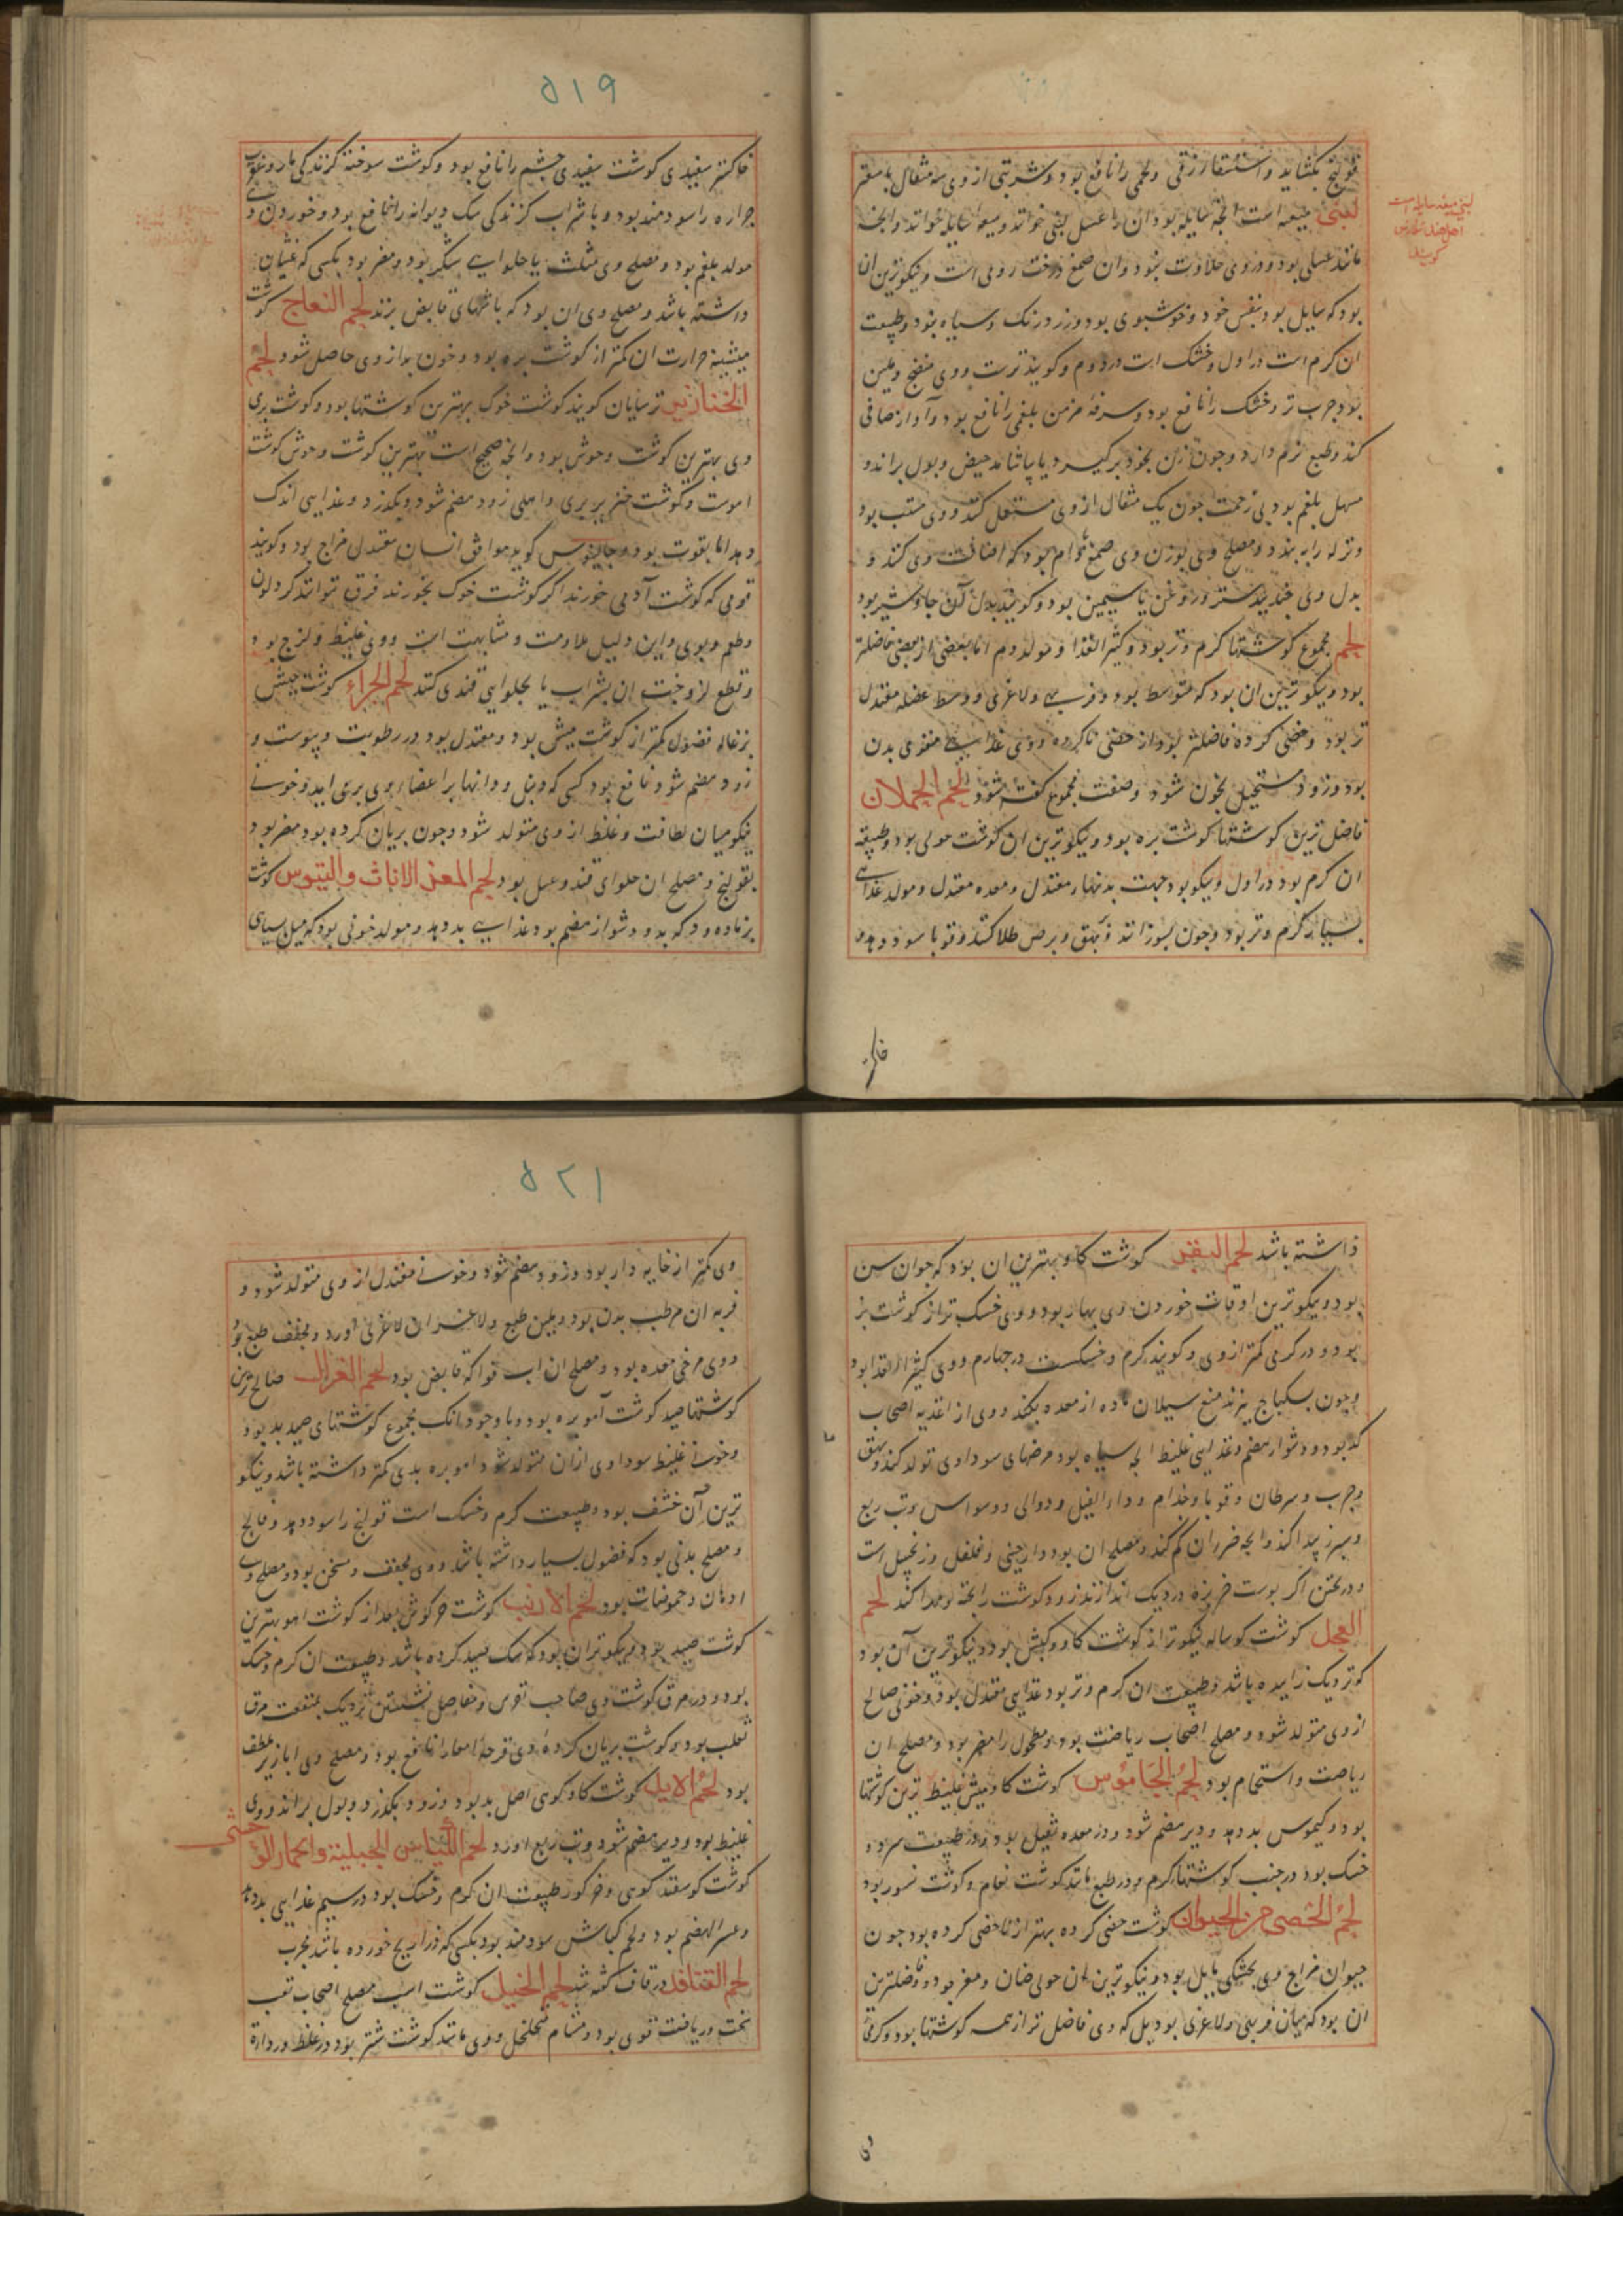 قولنج بکشاید و استسقا زقی و لحمی را نافع بود و شربتی از وی سه مثقال
لبنی میعه است انچه سایله بود آن را عسل لبنی خوانند و میعه سایله خوانند و انچه
مانند عسلی بود و در وی حلاوت نبود و ان صمغ درخت رومی است و نیکوترین ان
بود که سایل بود بنفس خود و خوشبوی بود و زرد رنک و سیاه نبود و طبیعت
ان کرم است در اول و خشک است در دوم و کویند ترست و وی منضج و ملین
بود جرب تر و خشک را نافع بود و سرفه مزمن بلغمی را نافع بود و آواز صافی
کند و طبع نرم دارد و چون زن بخود برکیرد یا بیاشامد حیض و بول براند و
مسهل بلغم بود بی زحمت چون یک مثقال از وی مستعمل کنند و وی
و نزله را ببندد و مصلح وی بوزن وی صمغ بادام بود که اضافت وی کنند و
بدل وی جندبیدستر و روغن یاسمین بود و کویند بدل آن جاوشیر بود
لحم مجموع کوشتها کرم و تر بود و کثیر الغذا و مولد دم اما بعضی از بعضی فاضلتر
بود و نیکوترین ان بود که متوسط بود در فربهی و لاغری و وسط عضله معتدل
تر بود و خصی کرده فاضلتر بود از خصی ناکرده و وی غذایی مقوی بدن
بود و زود مستحیل بخون شود و صفت مجموع کفته شود لحم الحملان
فاضل ترین کوشتها کوشت بره بود و نیکوترین ان کوشت حولی بود و طبیعت
ان کرم بود در اول و نیکو بود جهت بدنهاء معتدل و معده معتدل و مولد غذایی
بسیار کرم و تر بود و چون بسوزانند و بهق و برص طلا کنند و قوبا سود دهد
۵۱۹
خاکستر سفیدی کوشت سفیدی چشم را نافع بود و کوشت سوخته کزندکی مار و عقرب
جراره را سودمند بود و با شراب کزندکی سک دیوانه را نافع بود و خوردن
مولد بلغم بود و مصلح وی مثلث یا حلوایی شکر بود و مضر بود بکسی که غثیان
داشته باشد و مصلح وی ان بود که با شرابهای قابض بزند لحم النعاج کوشت
میشینه حرارت ان کمتر از کوشت بره بود و خون بد از وی حاصل شود لحم
الخنازیر ترسایان کویند کوشت خوک بهترین کوشتها بود و کوشت بری
وی بهترین کوشت وحوش بود و انچه صحیح است بهترین کوشت وحوش کوشت
اهوست و کوشت خنزیر بری و اهلی زود هضم شود و بکذرد و غذایی اندک
دهد اما بقوت بود و جالینوس کوید موافق انسان معتدل مزاج بود و کویند
قومی که کوشت آدمی خورند اکر کوشت خوک بخورند فرق نتوانند کرد لون
و طعم و بوی و این دلیل ملاومت و مشابهت است و وی غلیظ و لزج بود
و قطع لزوجت ان بشراب یا بحلوایی قندی کنند لحم الجداء کوشت
بزغاله فضول کمتر از کوشت میش بود و معتدل بود در رطوبت و یبوست و
زود هضم شود و نافع بود کسی که دمل و دانها بر اعضاء وی برمی اید و خونی
نیکو میان لطافت و غلظ از وی متولد شود و چون بریان کرده بود مضر بود
بقولنج و مصلح ان حلوای قند و عسل بود لحم المعز الاناث و التیوس کوشت
بز ماده و نر که بد و دشوار هضم بود غذایی بد دهد و مولد خونی بود که میل بسیاهی
داشته باشد لحم البقر کوشت کاو بهترین ان بود که جوان سن
بود و نیکوترین اوقات خوردن وی بهار بود و وی خشک تر از کوشت بز
بود و در کرمی کمتر از وی و کویند کرم و خشکست در چهارم و وی کثیر الغذا بود
و چون بسکباج بپزند منع سیلان ماده از معده بکند و وی از اغذیه اصحاب
کد بود و دشوار هضم و غذایی غلیظ سیاه بود و مرضهای سوداوی تولد کند و بهق
و جرب و سرطان و قوبا و جذام و داء الفیل و دوالی و وسواس و تب ربع
و سبرز پیدا کند و انچه ضرر ان کم کند و مصلح ان بود دارچینی و فلفل و زنجبیل است
و در پختن اکر پوست خربزه در دیک اندازند زود کوشت را پخته و مهرا کند لحم
العجل کوشت کوساله نیکوتر از کوشت کاو و کبش بود و نیکوترین آن بود
که نزدیک زاییده باشد و طبیعت ان کرم و تر بود غذایی معتدل بود و خونی صالح
از وی متولد شود و مصلح اصحاب ریاضت بود و مطحول را مضر بود و مصلح ان
ریاضت و استحمام بود لحم الجاموس کوشت کاومیش غلیظ ترین کوشتها
بود و کیموس بد دهد و دیر هضم شود و در معده ثقیل بود و در طبیعت سرد و
خشک بود در جنب کوشتهاء کرم و در طبع مانند کوشت نعام و کوشت نسور بود
لحم الخصی من الحیوان کوشت خصی کرده بهتر از ناخصی کرده بود چون
حیوان مزاج وی بخشکی مایل بود و نیکوترین ان حولی ضان و معز بود و فاضلترین
ان بود که میان فربهی و لاغری بود بل که وی فاضل تر از همه کوشتها بود و کرمی
۵۲۱
وی کمتر از خایه دار بود و زود هضم شود و خونی معتدل از وی متولد شود و
فربه ان مرطب بدن بود و ملین طبع و لاغر ان لاغری اورد و مجفف طبع بود
و وی مرخی معده بود و مصلح ان اب فواکه قابض بود لحم الغزال صالح ترین
کوشتها صید کوشت آهو بره بود و با وجود انک مجموع کوشتهای صید بد بود
و خونی غلیظ سوداوی ازان متولد شود اهو بره بدی کمتر داشته باشد و نیکو
ترین آن خشف بود و طبیعت کرم و خشک است قولنج را سود دهد و فالج
و مصلح بدنی بود که فضول بسیار داشته باشد و وی مجفف و مسخن بود و مصلح وی
ادهان و حموضات بود لحم الارنب کوشت خرکوش بعد از کوشت اهو بهترین
کوشت صید بود و نیکوتر ان بود که سک صید کرده باشد و طبیعت ان کرم و خشک
بود و در مرق کوشت وی صاحب نقرس و مفاصل نشستن نزدیک بمنفعت مرق
ثعلب بود و کوشت بریان کرده وی قرحه امعا را نافع بود و مصلح وی ابازیر ملطف
بود لحم الایل کوشت کاو کوهی اصل بد بود و زود بکذرد و بول براند و وی
غلیظ بود و دیر هضم شود و تب ربع اورد لحم الکباش الجبلیة و الحمار الوحشی
کوشت کوسفند کوهی و خر کور طبیعت ان کرم و خشک بود در سیم غذایی بد دهد
و عسر الهضم بود و لحم کباش سودمند بود بکسی که ذراریح خورده باشد مجرب
لحم القنافذ در قاف کفته شد لحم الخیل کوشت اسب مصلح اصحاب تعب
سخت و ریاضت قوی بود و مسام متخلخل و وی مانند کوشت شتر بود در غلظ و رداءة